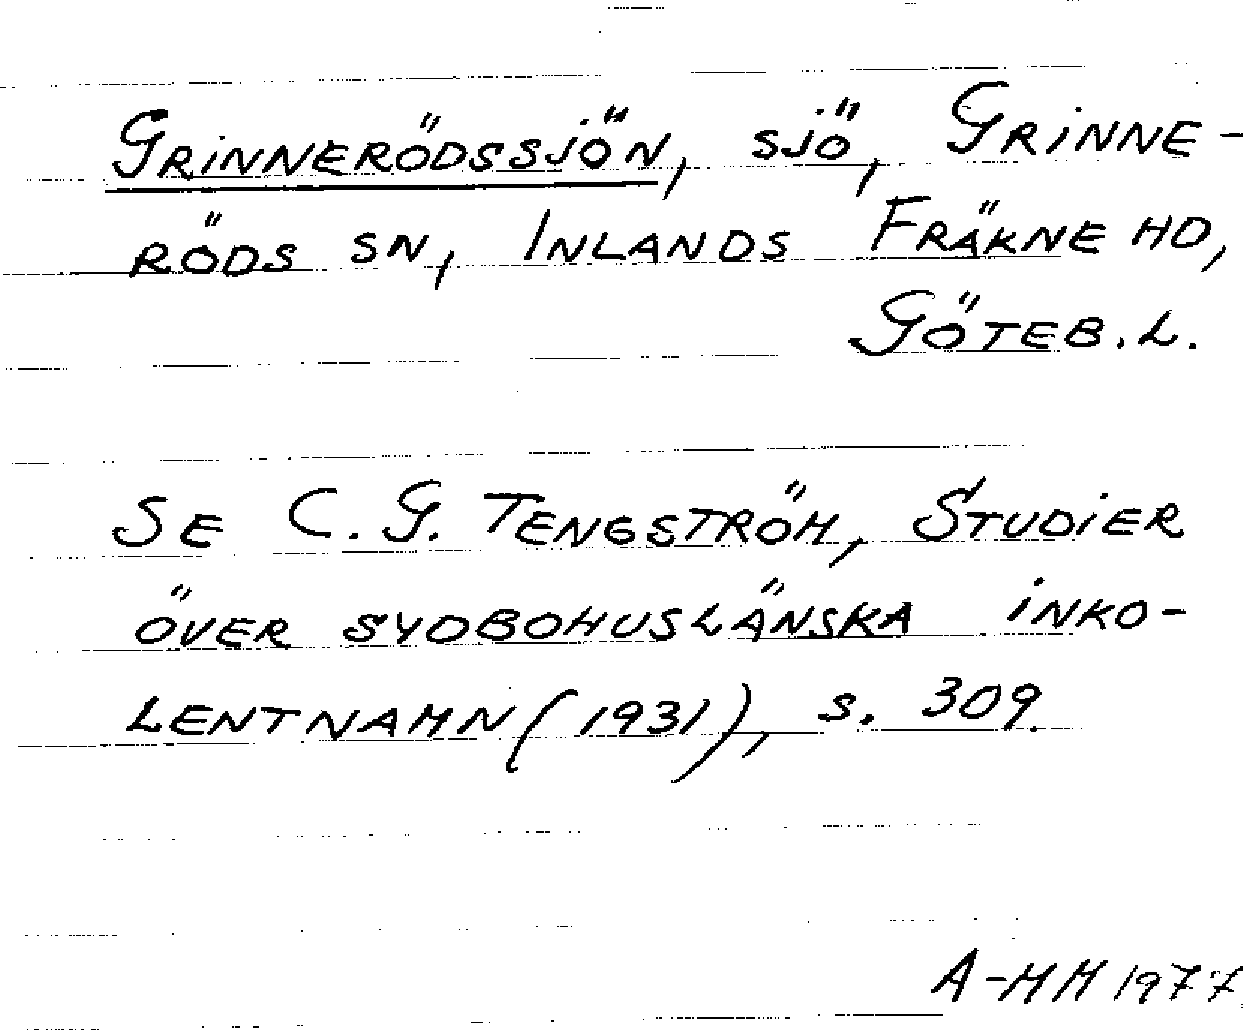 GRINNERÖDSSJÖN, SJÖ, GRINNE-
RÖDS SN, INLANDS FRÄKNE HD,
GÖTEB.L.
SE C.G. TENGSTRÖM, STUDIER
ÖVER SYDBOHUSLÄNSKA INKO-
LENTNAMN (1931), S. 309.
A-MM 1977